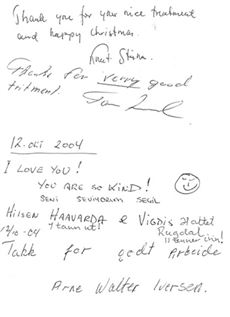 Thank you for your nice treatment
and happy christmas.
Knut
Thanks for verry good
tritment.
12. okt 2004
I LOVE YOU!
YOU ARE SO KIND!
SENI SEVIYORUM
HILSEN HAAVARDA & VIGDIS
1 tann ut!
14/10-04
Takk for godt Arbeide
Arne Walter Iversen.